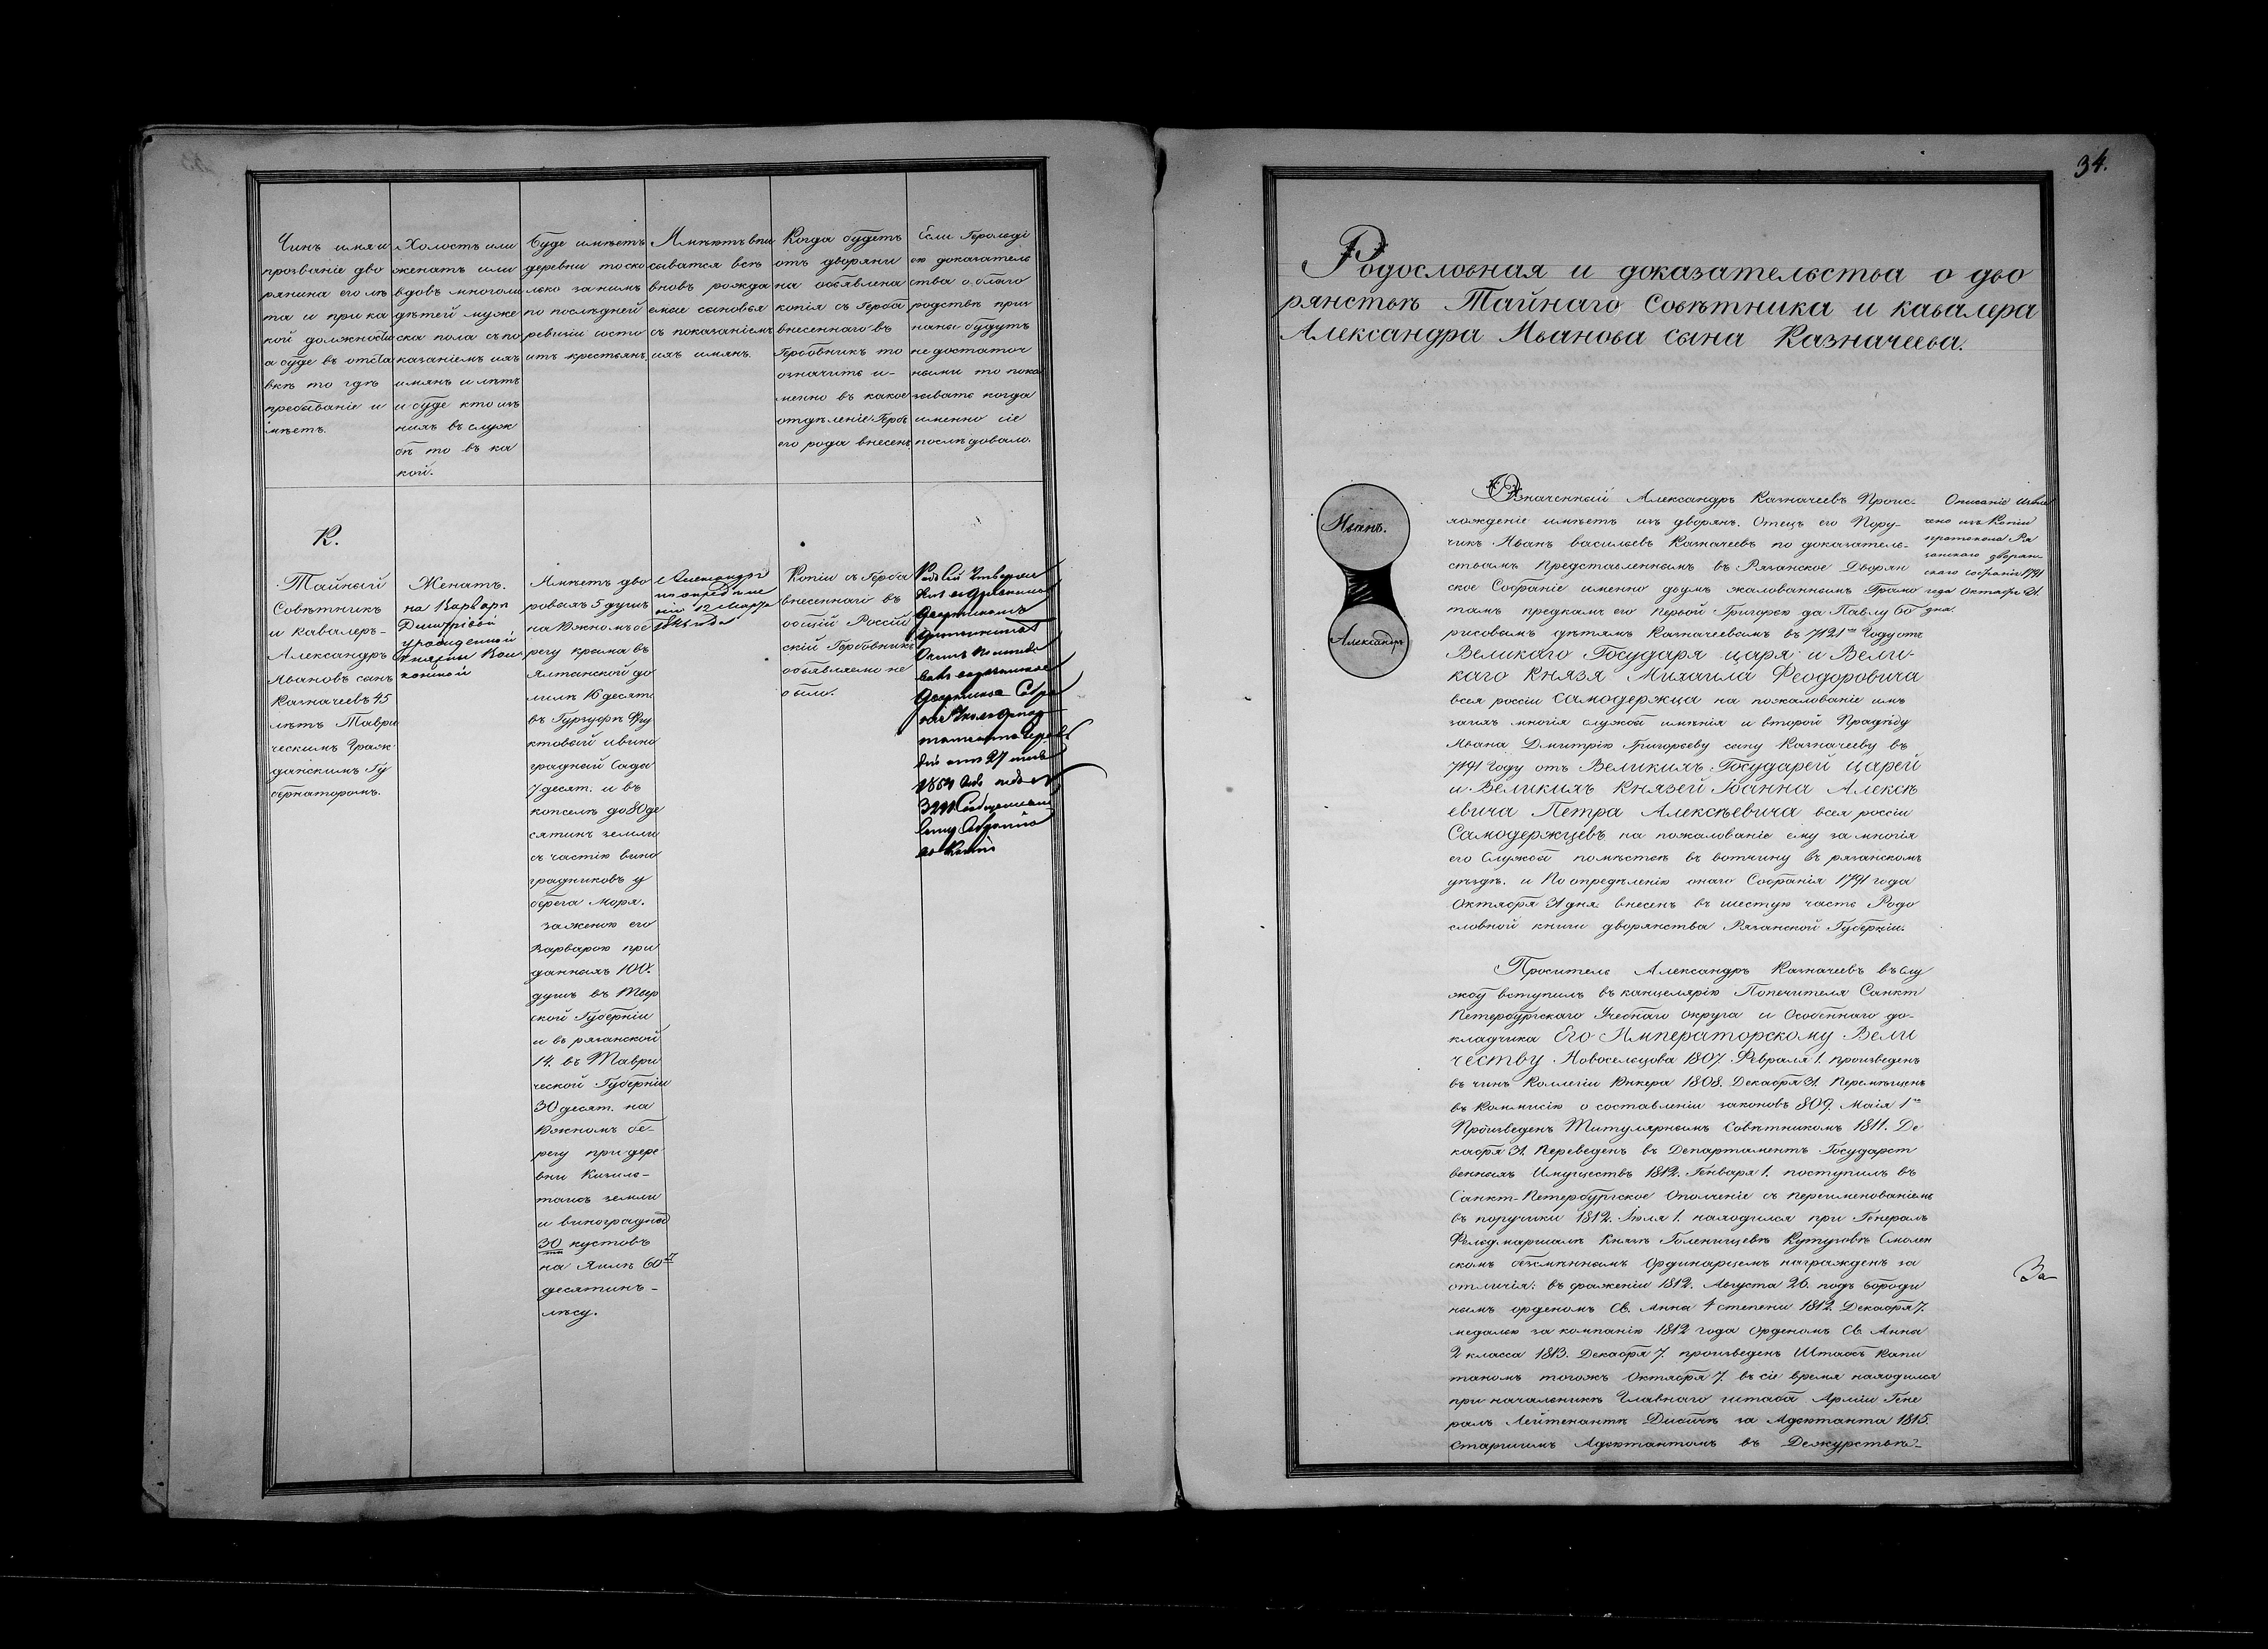 Чинъ имя и
прозваніе дво
рянина его лѣ
та и при ка
кой должности
а буде въ отста
вкѣ то гдѣ
пребываніе и
мѣетъ.
Холостъ или
женатъ или
вдовъ многоли
дѣтей муже
ска пола съ по
казаніемъ ихъ
имянъ и лѣтъ
и буде кто изъ
нихъ въ служ
бѣ то въ ка
кой.
Буде имѣетъ
деревни то ско
лько за нимъ
по послѣдней
ревизіи состо
итъ крестьянъ.
Имѣютъ впи
сыватся всѣ
вновь рожда
емые сыновья
съ показаніемъ
ихъ имянъ.
Когда будетъ
отъ дворяни
на объявлена
копія съ Герба
внесеннаго въ
Гербовникъ то
означить и-
менно въ какое
отдѣленіе Гербъ
его рода внесенъ
Если Герольді
ею доказатель
ства о благо
родствѣ приз
наны будутъ
недостаточ
ными то пока
зывать когда
именно сіе
послѣдовало.
К.
Тайный
Совѣтникъ
и кавалеръ-
Александръ
Ивановъ сынъ
Казначеевъ 45
лѣтъ Таври
ческимъ Граж
данскимъ Гу
бернаторомъ.
Женатъ.
на Варварѣ
Дмитріевой
урожденной
Княжнѣ Вол
конской
Имѣетъ дво
ровыхъ 5 душъ
на Южномъ бе
регу крыма въ
Ялтинской до
линѣ 16 десят.
въ Гурзуфѣ Фру
ктовый и вино
градный Сада
7 десят. и въ
копселѣ до 80 де
сятинъ земли
съ частію вино
градниковъ у
берега Моря.
за женою его
Варварою при
данныхъ 100.
душъ въ Твер
ской Губерніи
и въ рязанской
14. въ Таври
ческой Губерніи
30 десят. на
Южномъ бе-
регу при дере
вни Кизиль-
ташъ земли
и виноградной
30 кустовъ
на Яилѣ 60
десятинъ-
лѣсу.
Александръ
по опредѣле
нію 12 Марта
года
Копіи съ Герба
внесеннаго въ
общій Россій
скій Гербовникъ
объявляемо не
было.
Родъ Сей Утвержден
27
1854
3291
34.
Родословная и доказательства о дво
рянствѣ Тайнаго Совѣтника и кавалера
Александра Иванова сына Казначеева.
Иванъ.
Александръ
Означенный Александръ Казначеевъ Проис-
хожденіе имѣетъ изъ дворянъ. Отецъ его Пору-
чикъ Иванъ васильевъ Казначеевъ по доказатель-
ствамъ Представленнымъ въ Рязанское Дворян
ское Собраніе именно двумъ жалованнымъ Грамо
тамъ предкамъ его Первой Григорью да Павлу Бо
рисовымъ дѣтямъ Казначеевымъ въ 7121 году отъ
Великаго Государя царя и Вели-
каго Князя Михаила Феодоровича
всея россіи самодержца на пожалованіе имъ
за ихъ многія службы имѣнія и второй Прадѣду
Ивана Дмитрію Григорьеву сыну Казначееву въ
7191 году отъ Великихъ Государей Царей
и Великихъ Князей Іоанна Алексѣ
евича Петра Алексѣевича всея россіи
Самодержцевъ на пожалованіе ему за многія
его Службы помѣстьѣ въ вотчину въ рязанскомъ
уѣздѣ. и По опредѣленію онаго Собранія 1791 года
Октября 31 дня. внесенъ въ шестую часть Родо
словной книги дворянства Рязанской Губерніи.
Описаніе извле
чено изъ Копіи
протокола Ря
занскаго дворян-
скаго собранія 1791
года Октября 31.
дня.
Проситель Александръ Казначеевъ въ Слу
жбу вступилъ въ канцелярію Попечителя Санкт
Петербургскаго Учебнаго округа и Особеннаго до-
кладчика Его Императорскому Вели
честву Новосельцова 1807. Февраля 1. произведенъ
въ чинъ Коллегіи Юнкера 1808. Декабря 31. Перемѣщенъ
въ Коммисію о составленіи законовъ 809. Маія 1го
Произведенъ Титулярнымъ Совѣтникомъ 1811. Де
кабря 31. Переведенъ въ Департаментъ Государст
венныхъ Имуществъ 1812. Генваря 1. поступилъ въ
Санкт-Петербургское Ополченіе съ переименованіемъ
въ поручики 1812. Іюля 1. находился при Генералъ
Фельдмаршалѣ Князѣ Голенищевѣ Кутузовѣ Смолен
скомъ безсмѣннымъ Ординарцемъ награжденъ за
отличія: въ сраженіи 1812. Августа 26. подъ Бороди
нымъ орденомъ Св. Анны 4 степени 1812. Декабря 7.
медалью за компанію 1812 года Орденомъ Св. Анны
2 класса 1813. Декабря 7. произведенъ Штабсъ Капи
таномъ тогожъ Октября 7. въ сіе время находился
при начальникѣ Главнаго штаба Арміи Гене
ралъ Лейтенантѣ Дибичѣ за Адъютанта 1815.
Старшимъ Адъютантомъ въ Дежурствѣ-
За